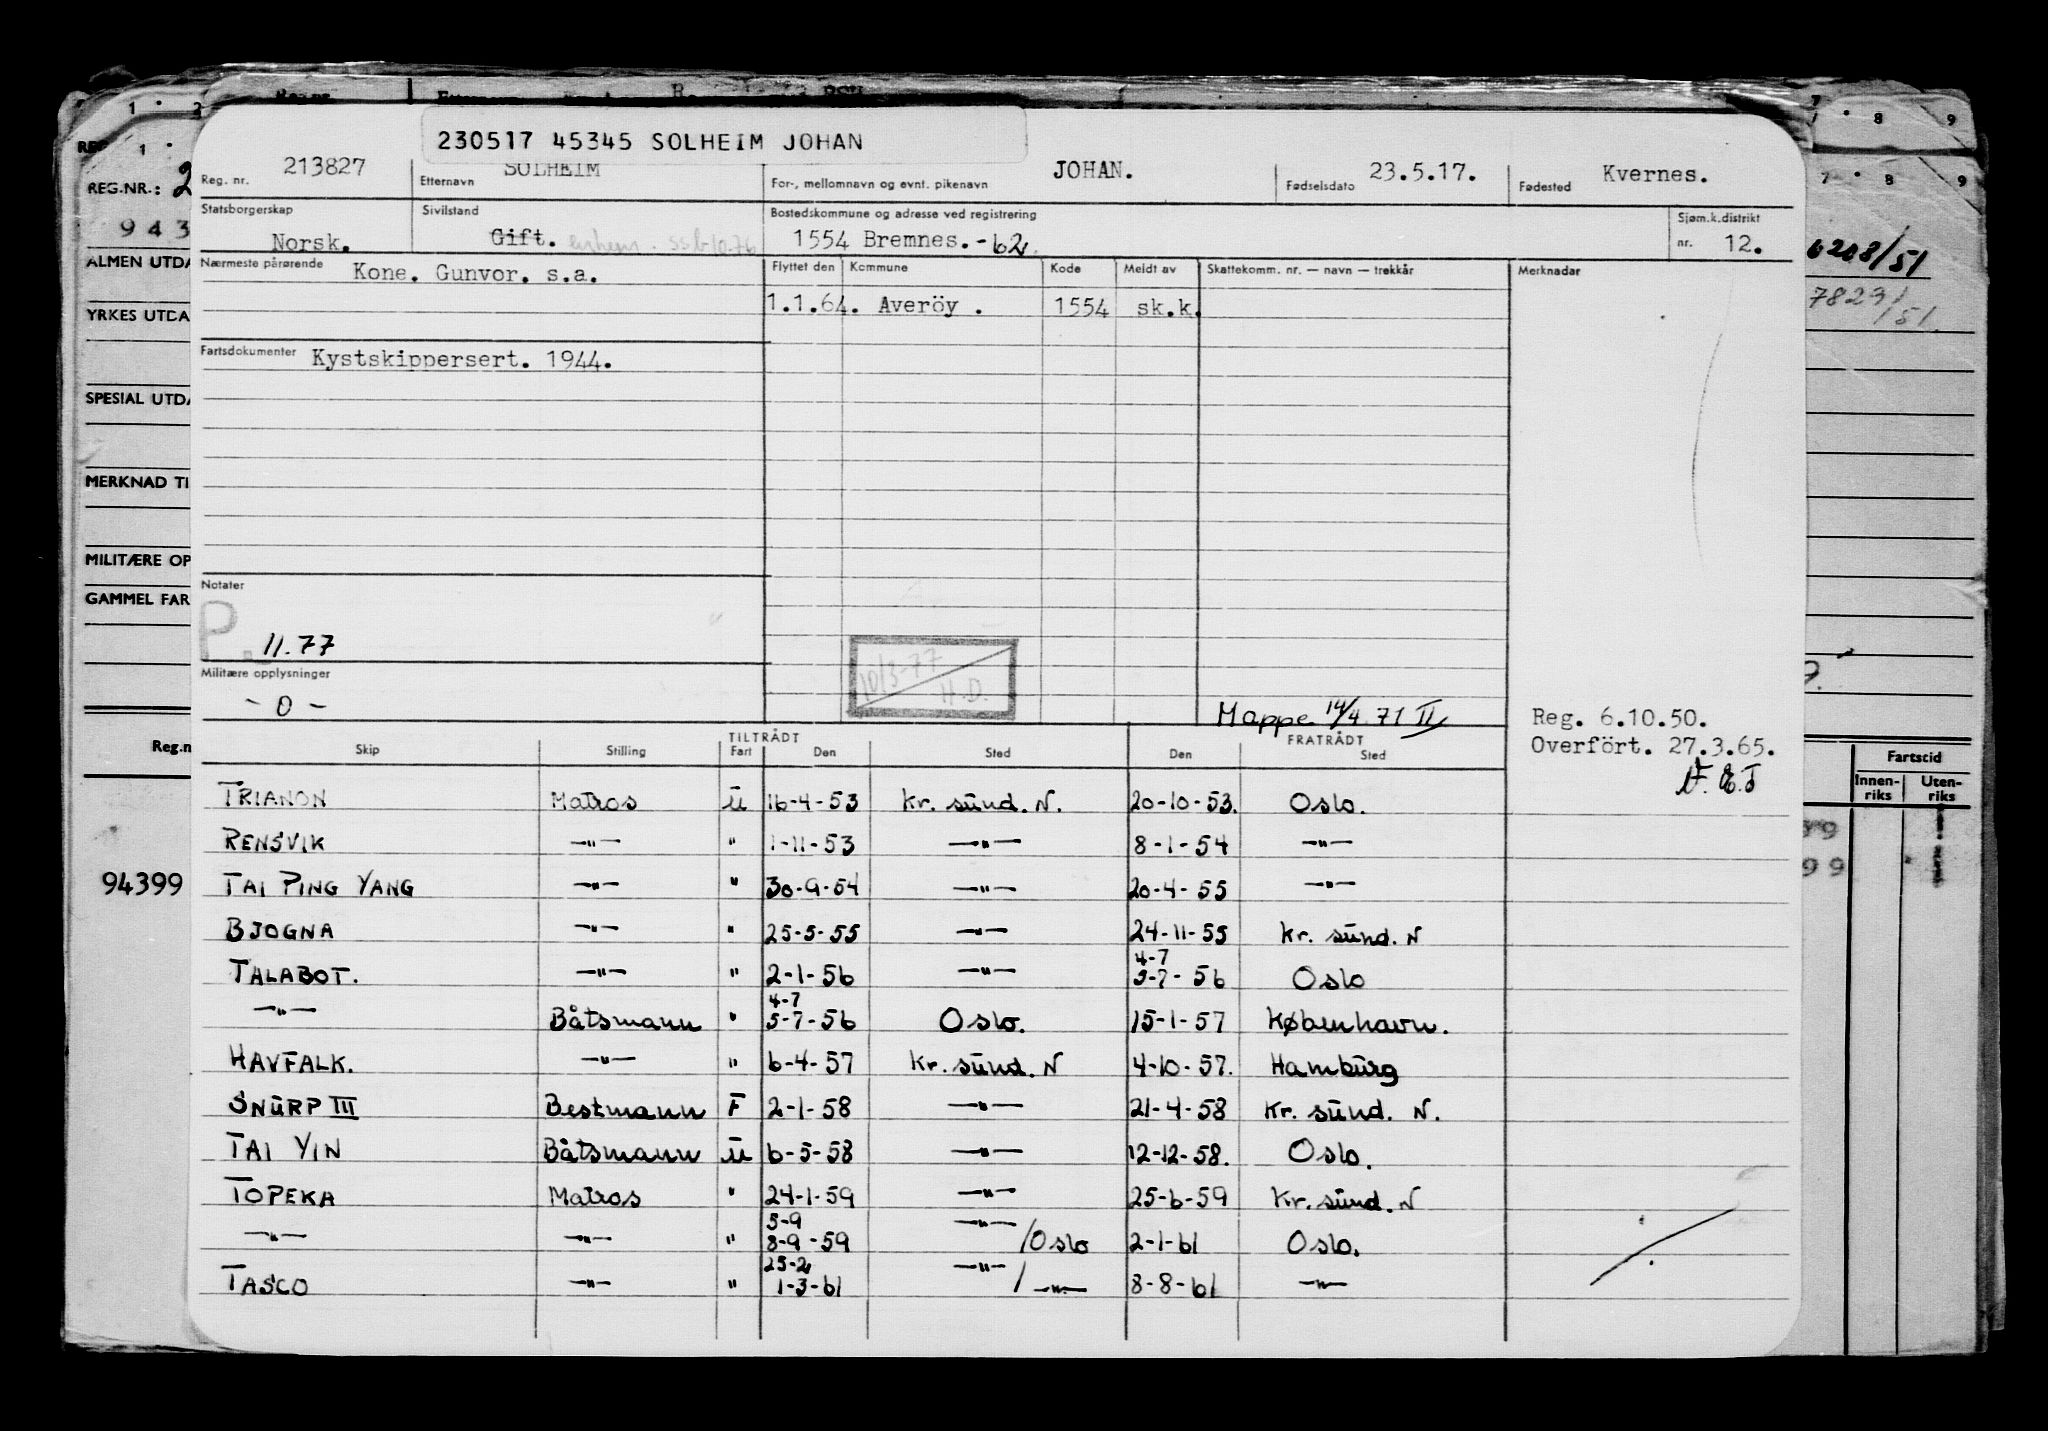 230517 45345 SOLHEIM JOHAN
Reg. nr. 213827 Etternavn SOLHEIM For-, mellomnavn og evnt. pikenavn JOHAN. Fødselsdato 23.5.17. Fødested Kvernes.
Statsborgerskap Norsk. Sivilstand Gift. Bostedskommune og adresse ved registrering 1554 Bremnes. -62. Sjøm.k.distrikt nr. 12.
Nærmeste pårørende Kone. Gunvor. s.a. Flyttet den Kommune Kode Meldt av Skattekomm. nr. — navn — trekkår Merknader
1.1.64. Averöy . 1554 sk.k.
Fartsdokumenter Kystskippersert. 1944.
Notater
P. 11.77
10/3-77
H.D.
Militære opplysninger
- 0 -
Mappe 14/4 71 II
Reg. 6.10.50.
Overfört. 27.3.65.
TILTRÅDT FRATRÅDT
Skip Stilling Fart Den Sted Den Sted
TRIANON Matros U 16-4-53 Kr. sund. N. 20-10-53. Oslo.
RENSVIK —"— " 1-11-53 —"— 8-1-54 —"—
TAI PING YANG —"— " 30-9-54 —"— 20-4-55 —"—
BJOGNA —"— " 25-5-55 —"— 24-11-55 Kr. sund. N
4-7
TALABOT. —"— " 2-1-56 —"— 5-7-56 Oslo
4-7
—"— Båtsmann " 5-7-56 Oslo. 15-1-57 København.
HAVFALK. —"— " 6-4-57 Kr. sund. N 4-10-57. Hamburg
SNURP III Bestmann F 2-1-58 —"— 21-4-58 Kr. sund. N.
TAI YIN Båtsmann U 6-5-58 —"— 12-12-58. Oslo.
TOPEKA Matros " 24-1-59 —"— 25-6-59 Kr. sund. N
5-9 —"—
—"— —"— " 8-9-59 /Oslo 2-1-61 Oslo.
25-2 —"—
TASCO —"— " 1-3-61 / —"— 8-8-61 —"—
REG.NR.: 2
943
ALMEN UTDA
YRKES UTDA
SPESIAL UTDA
MERKNAD TI
MILITÆRE OP
GAMMEL FAR
Reg.n
94399
6208/51
7829/51.
Fartstid
Innenriks Utenriks
99